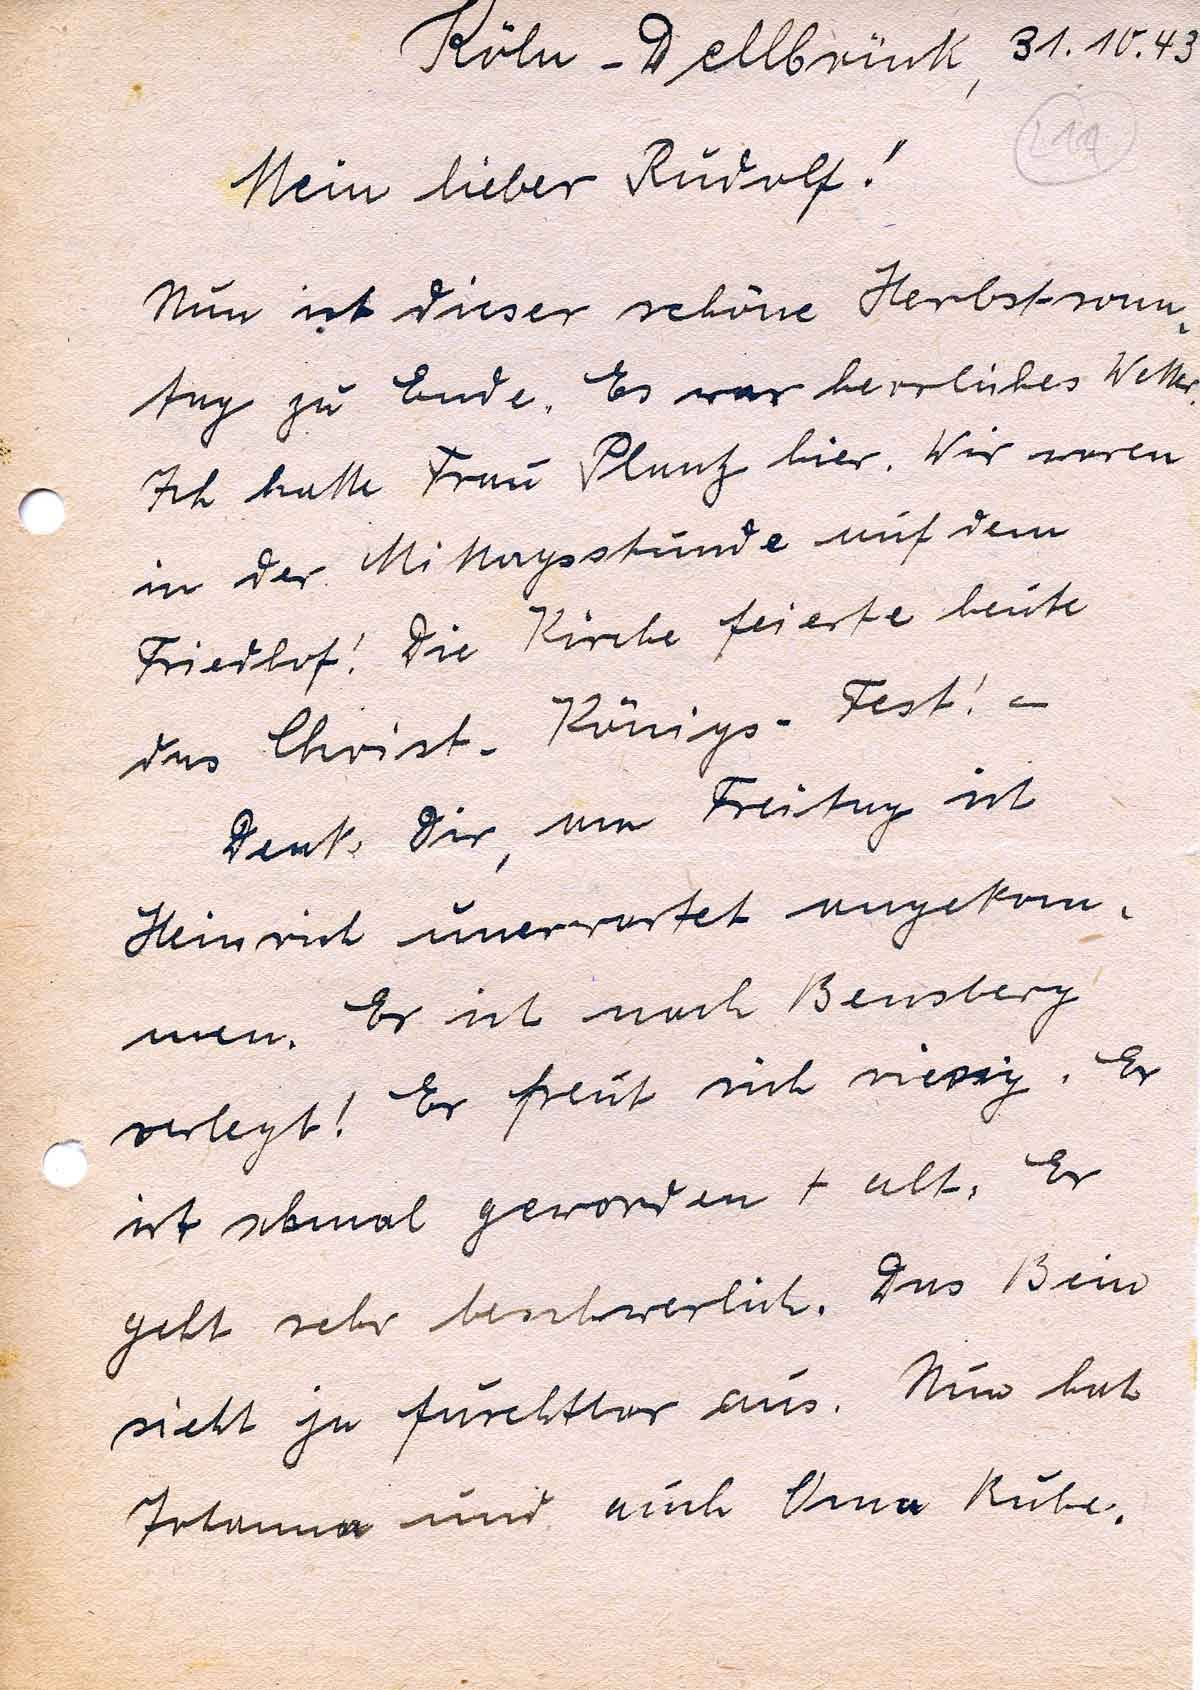 Köln - Dellbrück, 31.10.43
Mein lieber Rudolf!
Nun ist dieser schöne Herbstsonn-
tag zu Ende. Es war herrliches Wetter.
Ich hatte Frau Plantz hier. Wir waren
in der Mittagsstunde auf dem
Friedhof! Die Kirche feierte heute
das Christ- Königs- Fest! -
Denk Dir, am Freitag ist
Heinrich unerwartet angekom-
men. Er ist nach Bensberg
verlegt! Er freut sich riesig. Er
ist schmal geworden + alt. Er
geht sehr beschwerlich. Das Bein
sieht ja furchtbar aus. Nun hat
Johanna und auch Oma Ruhe.